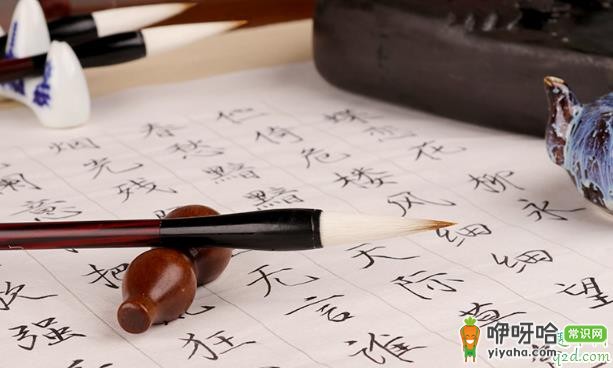 蝶恋花柳永
伫倚危楼风细细望
春愁黯黯天际草
烟光残无言谁
阑意把狂
强
咿呀哈 常识网
yiyaha.com